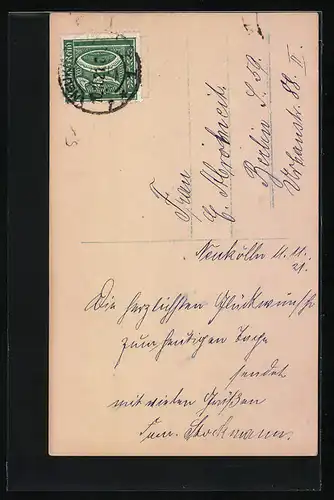 Frau
Berlin S. 59.
Urbanstr. 88 II.
Neukölln 11.11.
21.
Die herzlichsten Glückwünsche
zum heutigen Tage
sendet
mit vielen Grüßen
Fam. Stockmann.
5-